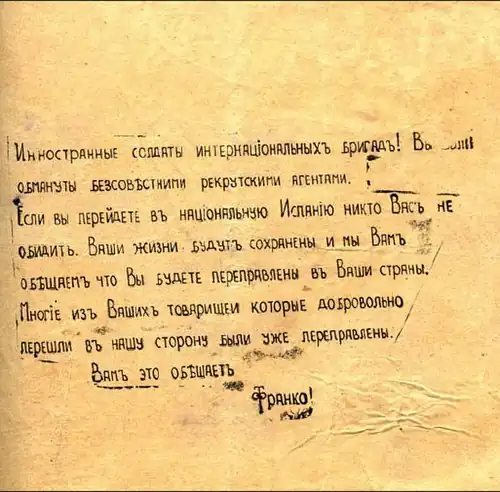 Инностранные солдаты интернаціональныхъ бригадъ! Вы были
обмануты безсовѣстними рекрутскими агентами.
Если вы перейдете въ національную Испанію никто Васъ не
обидить. Ваши жизни будутъ сохранены и мы Вамъ
обѣщаемъ что Вы будете переправлены въ Ваши страны.
Многіе изъ Вашихъ товарищеи которые добровольно
перешли въ нашу сторону были уже переправлены.
Вамъ это обѣщаетъ
Франко!